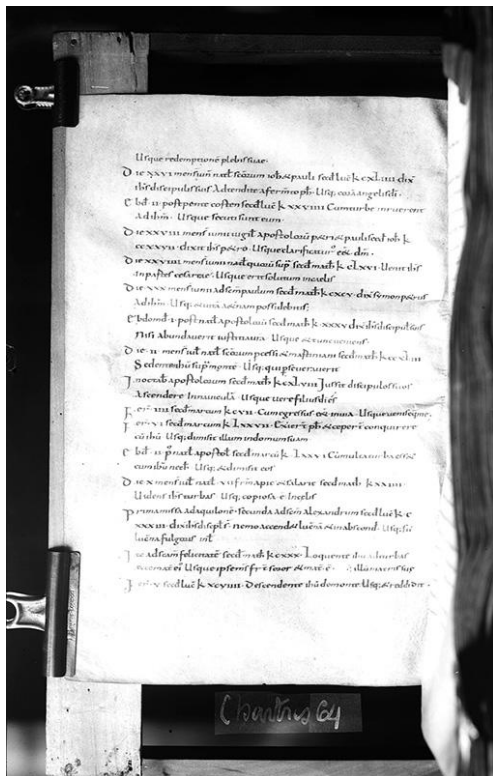 Usque redemptionē plebis suae·
Die XXVI mensium nat̄ scōrum ioh & pauli secd luc̄ k CXLIIII dix̄
ih̄s discipulis suis Adtendite a ferm̄to ph̄· Usq; corā angelis d̄i·
Ebd· II· post pente costen secd luc̄ k XXVIIII Cum turbe inruerent
Ad ih̄m· Usque secuti sunt eum·
Die XXVIII mens̄ iunii vigil̄ apostolorū p&ri & pauli secd ioh̄· k
CCXXVII· dixit ih̄s p&ro· Usque clarificatur' es& dm̄·
Die XXVIIII mens̄ iunii nat̄ quorū sup̄ secd math̄· k CLXVI· Uenit ih̄s
in partes cesareae· Usque erit solutum in caelis
Die XXX mens iunii ad sc̄m paulum secd math̄· k CXCV· dix̄ symon p&rus
Ad ih̄m· Usq; & uitā & &nam possidebit
Ebdomd· I· post nat̄ apostolorū secd math̄· k· XXXV dix̄ ih̄s discipul suis
Nisi abundauerit iustitia ura Usque & tunc ueniens·
Die· II· mens̄ iul̄ nat̄ scōrum processi & martiniani secd math̄ k CCXLIII
Sedente ih̄u sup̄ monte· Usq; qui perseuerauerit
In octab̄ apostolorum secd math̄ k CXLVIII Iussit discipulos suos
Ascendere in nauicula· Usque uere filius d̄i es
Fer̄· IIII secd marcum k CVII· Cum egressus es& inuia· Usque uenite ipse·
Fer̄ VI secd marcum k LXXVII· Exier̄t ph̄ & coeper̄t conquirere
cū ih̄u Usq; dimisit illum in domum suam
Ebd̄· II· p' nat̄ apostol̄ secd marcū k· LXXVI Cū multa turba ess&
cum ih̄u nec h̄· Usq; & dimisit eos
Die X mens̄ iul̄ nat̄· VII frm̄ apic & talarie secd math̄· k XXIII·
Uidens ih̄s turbas· Usq; copiosa ē in caelis
Prima missa ad aquilone· secunda ad sc̄m alexandrum secd luc̄ k· C
XXXIII· dix̄ ih̄s discip̄l s· nemo accend& lucernā & in abscond· Usq; sic
lucerna fulgoris
ie ad sc̄am felicitatē secd math̄ k CXXX· Loquente ih̄u ad turbas
ecce mater ei' Usque ipse m̄s fr̄ & soror & mat̄ ē·
Fer̄· V secd luc̄ k XCVIIII· Descendente ih̄u de monte· Usq; & reddidit·
Chartres 64